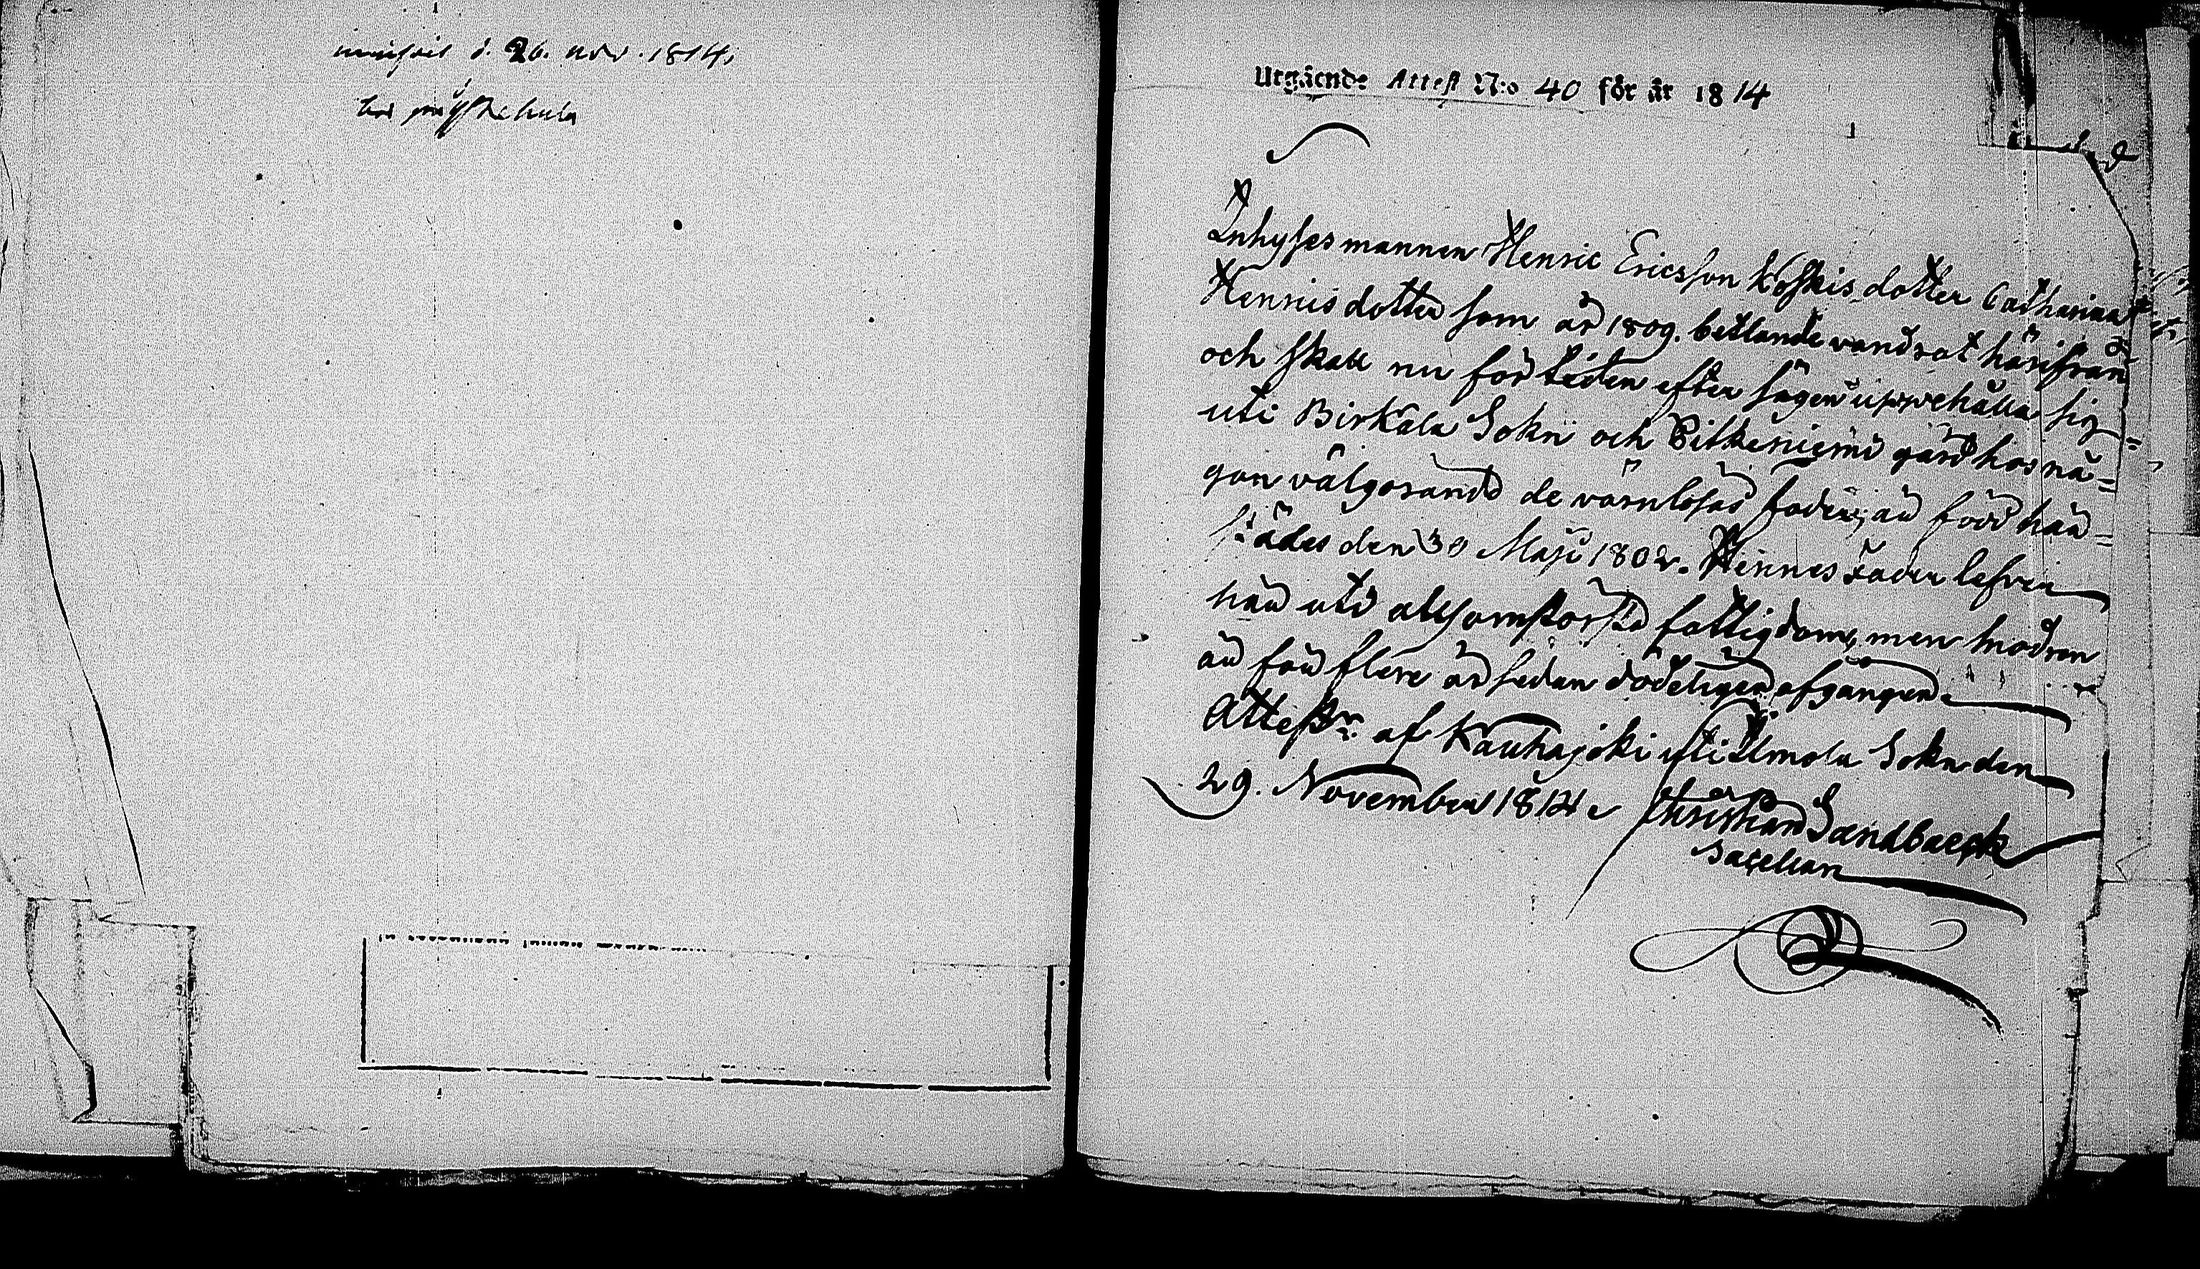 d. 26. nov. 1814.
Utgående Attest N:o 40 för år 1814
Inhyses mannen Henric Ericsson Koskis dotter Catharina
Henricsdotter som år 1809. betlande vandrat härifrån
och skall nu för tiden efter sägen uppehålla sig
uti Birkala Sokn och Pitkeniemi gård hos nå=
gon välgörande de värnlösas fader, är född här=
städes den 30 Maji 1802. Hennes Fader lefver
här uti alsomstörsta fattigdom, men modren
är för flere år sedan dödeligen afgången.
Attestr. af Kauhajoki uti Ilmola Sokn den
29. November 1814.
Christian Sandbaeck
Sacellan